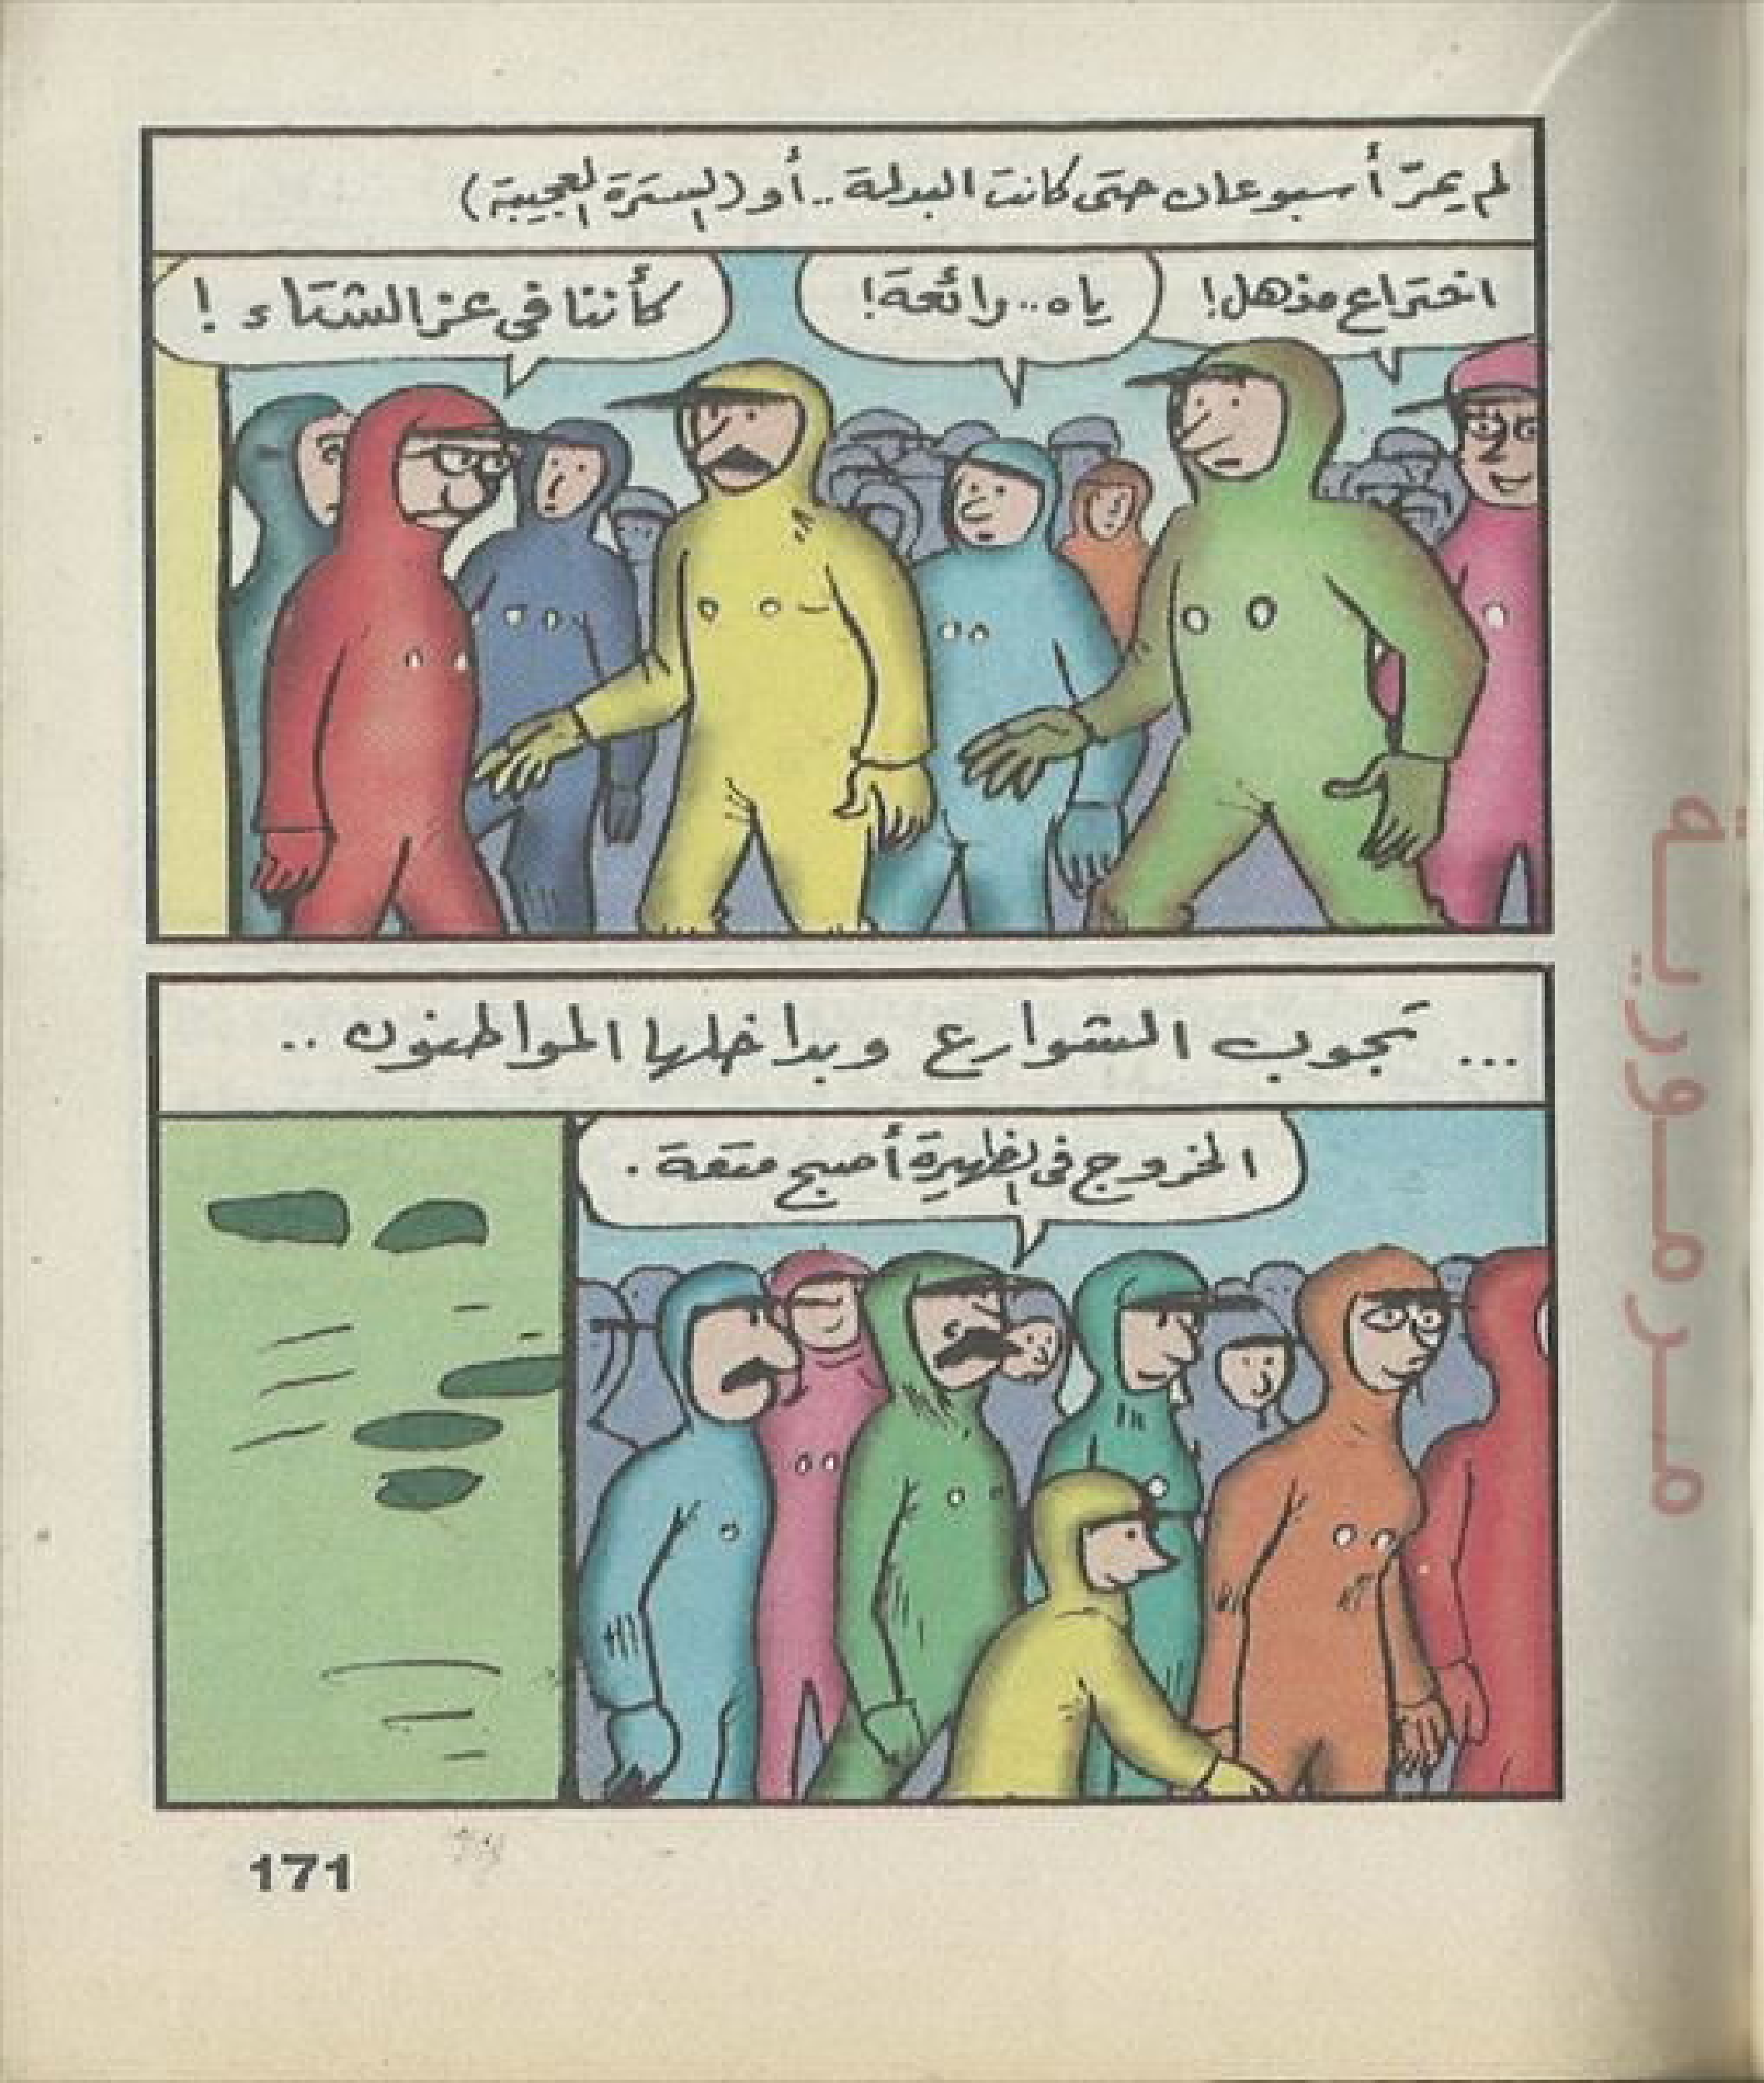 لم يمرّ أسبوعان حتى كانت البدلة .. أو (السترة العجيبة)
اختراع مذهل!
ياه .. رائعة!
كأننا في عز الشتاء !
... تجوب الشوارع وبداخلها المواطنون ..
الخروج في الظهيرة أصبح متعة .
مرمورية
171